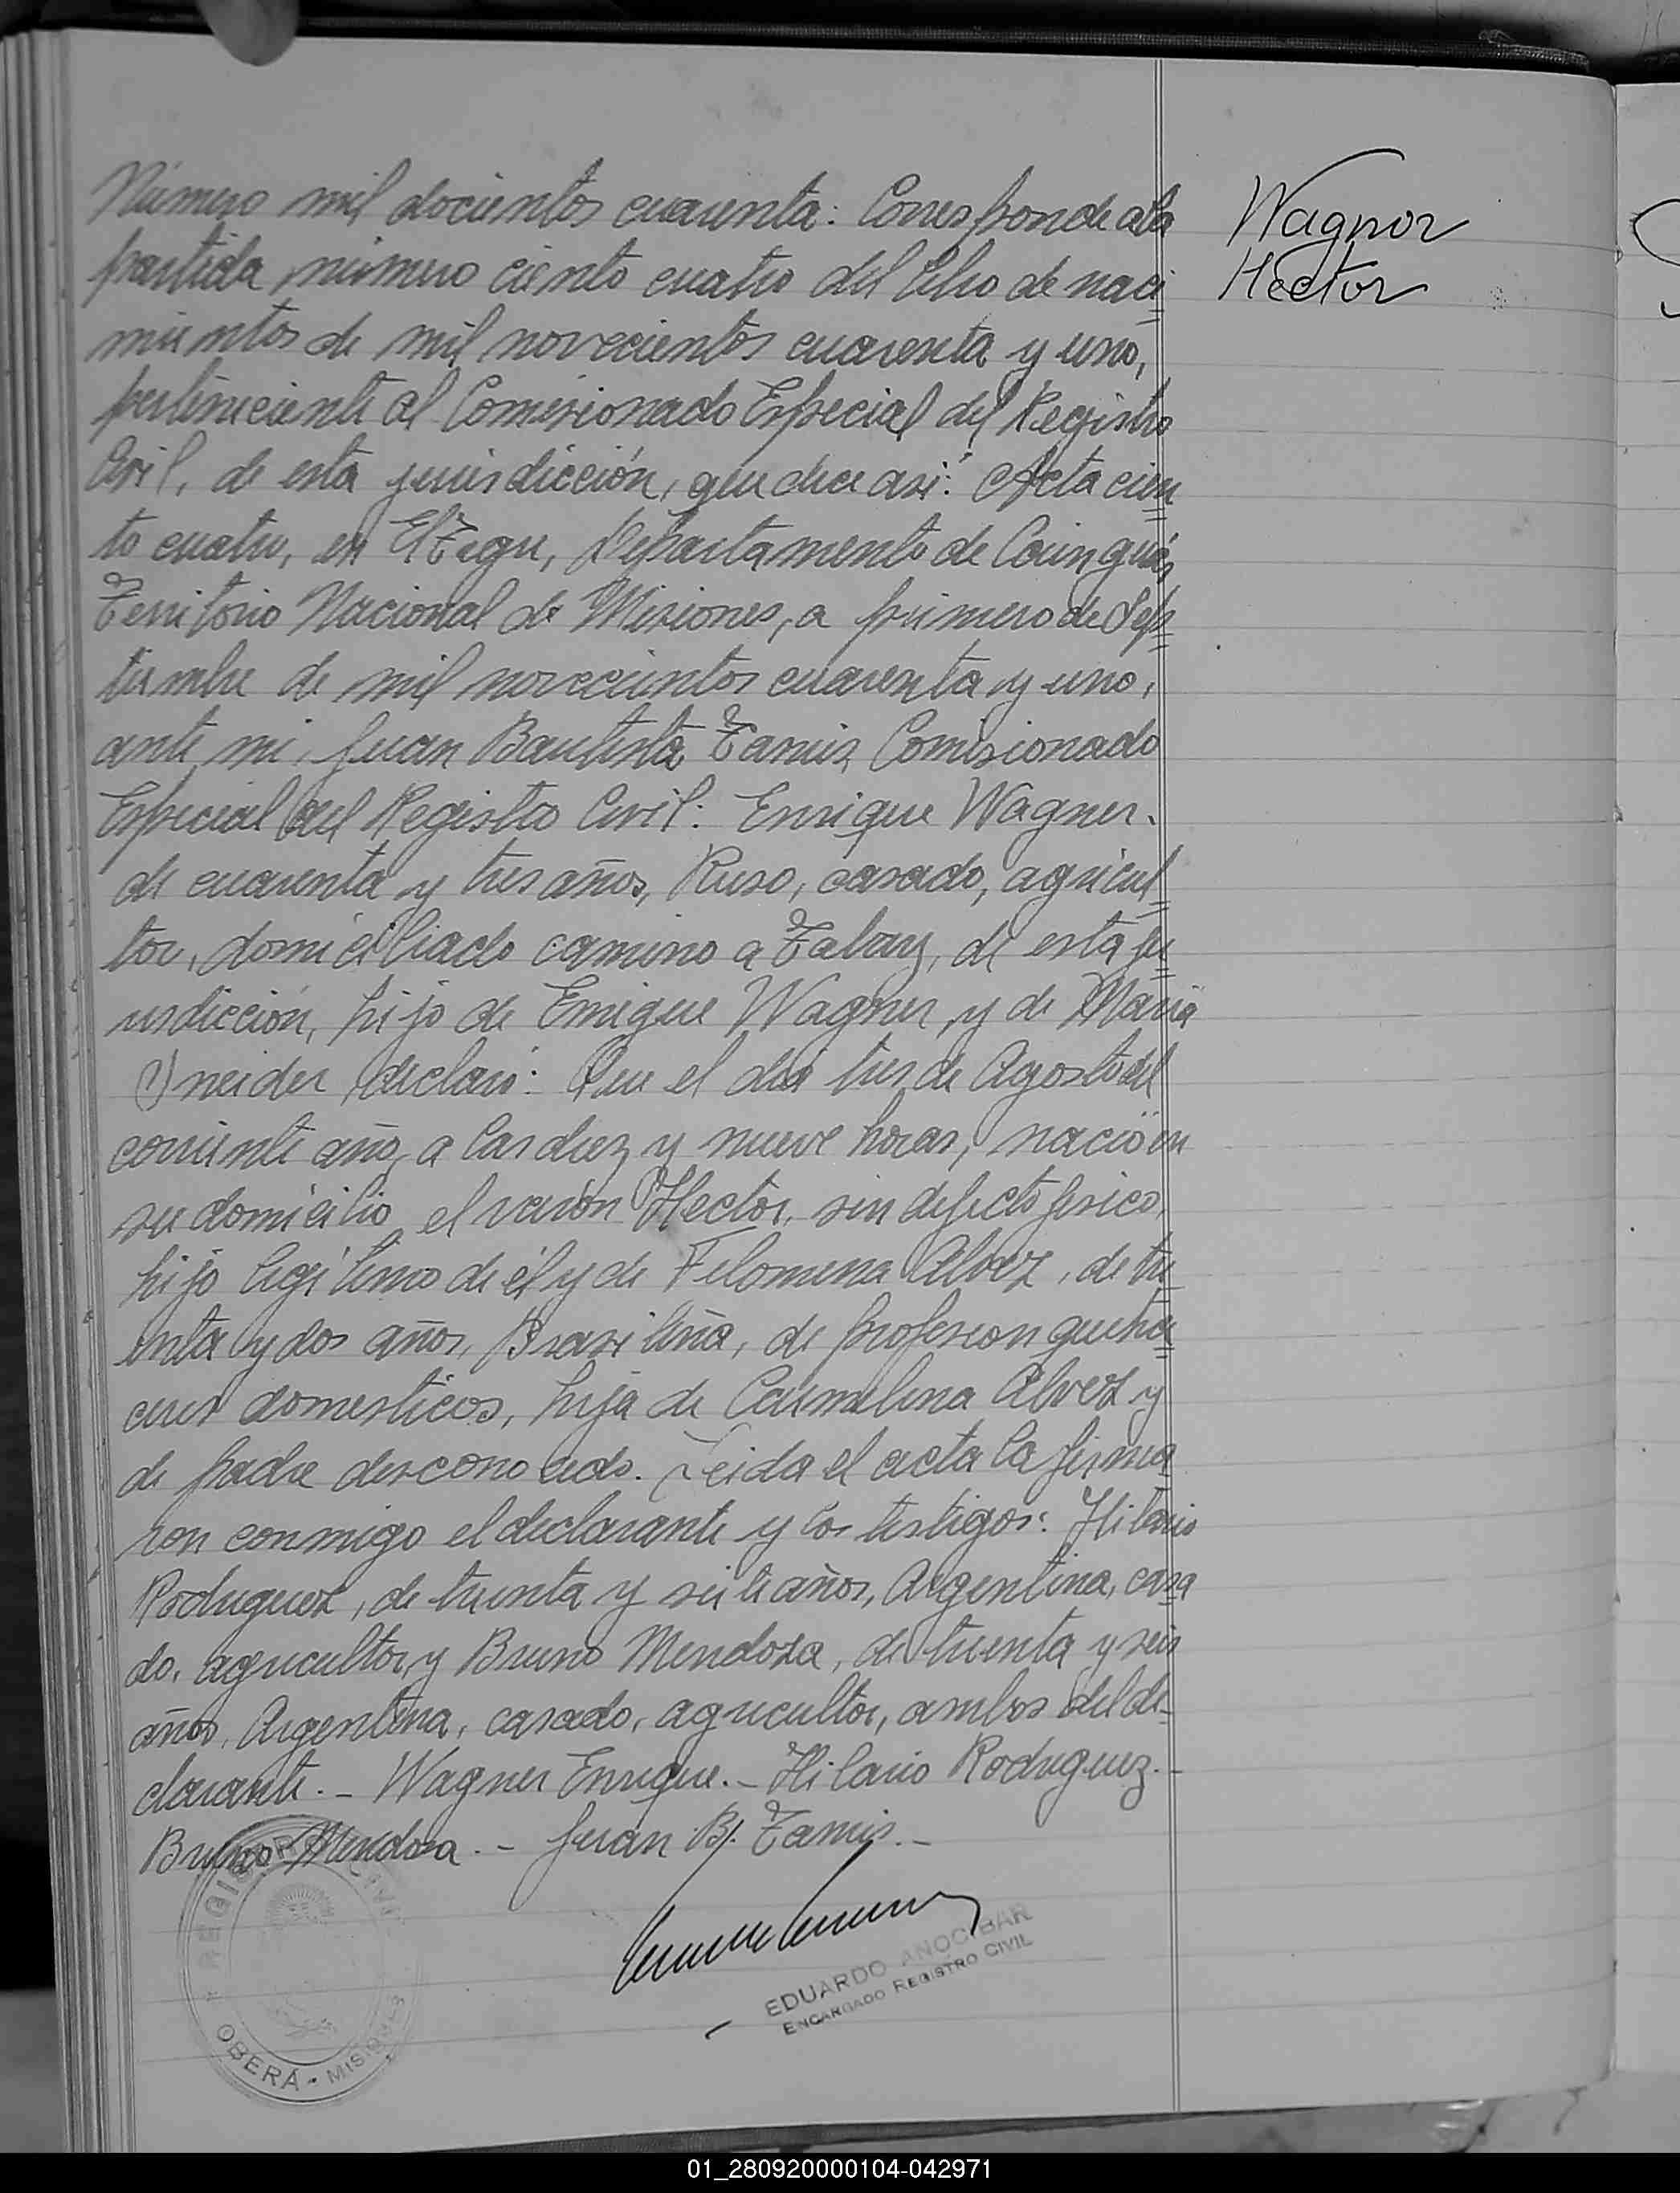 Número mil docientos cuarenta: Corresponde a la
Wagner
Hector
partida número ciento cuatro del libro de naci
mientos de mil novecientos cuarenta y uno,
perteneciente al Comisionado Especial del Registro
Civil, de esta jurisdicción, que dice asi: Acta cien
to cuatro, en El Tegu, Departamento de Cainguás,
Territorio Nacional de Misiones, a primero de Sep
tiembre de mil novecientos cuarenta y uno,
ante mi, Juan Bautista Comisionado
Especial del Registro Civil: Enrique Wagner.
de cuarenta y tres años, Ruso, casado, agricul
tor, domiciliado camino a Tabay, de esta ju
risdicción, hijo de Enrique Wagner, y de Maria
neider declaró: Que el dia tres de Agosto del
corriente año, a las diez y nueve horas, nació en
su domicilio el varón Hector, sin defecto fisico,
hijo legitimo de él y de Filomena Alvez, de tre
inta y dos años, Brasileña, de profesion queha
ceres domesticos, hija de Carmelina Alvez y
de padre desconocido. Leida el acta la firma
ron conmigo el declarante y los testigos: Hilario
Rodriguez, de treinta y siete años, Argentina, casa
do, agricultor, y Bruno Mendoza, de treinta y seis
años, Argentina, casado, agricultor, ambos del de-
clarante. - Wagner Enrique. - Hilario Rodriguez. -
Bruno Mendoza. - Juan B.
REGISTRO CIVIL
OBERÁ - MISIONES
EDUARDO ANOCIBAR
ENCARGADO REGISTRO CIVIL
01_280920000104-042971